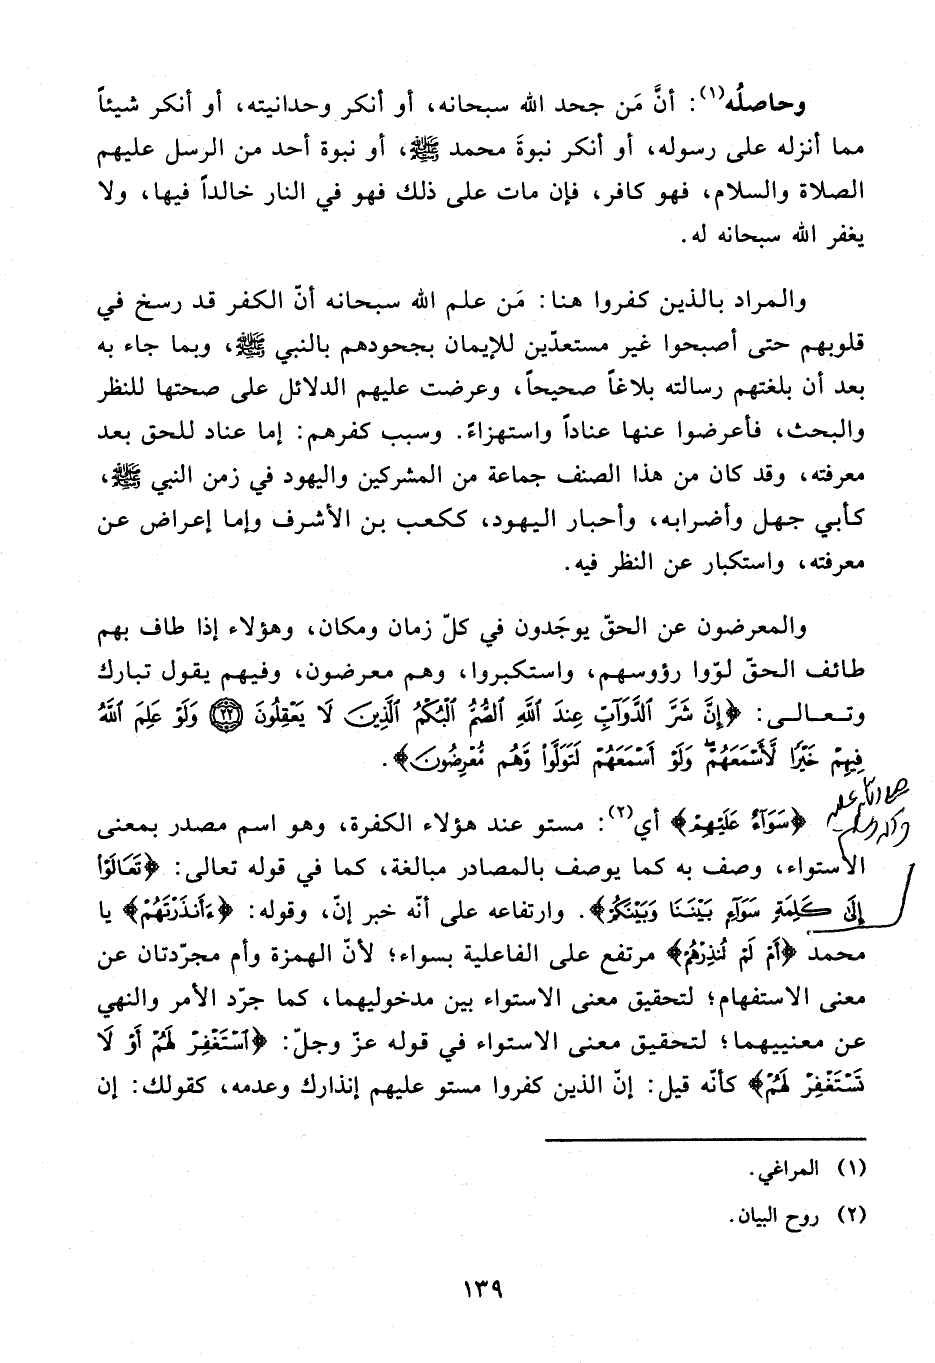 وحاصلُه(١): أنَّ مَن جحد الله سبحانه، أو أنكر وحدانيته، أو أنكر شيئاً
مما أنزله على رسوله، أو أنكر نبوةَ محمد ﷺ، أو نبوة أحد من الرسل عليهم
الصلاة والسلام، فهو كافر، فإن مات على ذلك فهو في النار خالداً فيها، ولا
يغفر الله سبحانه له.
والمراد بالذين كفروا هنا: مَن علم الله سبحانه أنّ الكفر قد رسخ في
قلوبهم حتى أصبحوا غير مستعدّين للإيمان بجحودهم بالنبي ﷺ، وبما جاء به
بعد أن بلغتهم رسالته بلاغاً صحيحاً، وعرضت عليهم الدلائل على صحتها للنظر
والبحث، فأعرضوا عنها عناداً واستهزاءً. وسبب كفرهم: إما عناد للحق بعد
معرفته، وقد كان من هذا الصنف جماعة من المشركين واليهود في زمن النبي ﷺ،
كأبي جهل وأضرابه، وأحبار اليهود، ككعب بن الأشرف وإما إعراض عن
معرفته، واستكبار عن النظر فيه.
والمعرضون عن الحقّ يوجَدون في كلّ زمان ومكان، وهؤلاء إذا طاف بهم
طائف الحقّ لوّوا رؤوسهم، واستكبروا، وهم معرضون، وفيهم يقول تبارك
وتعالى: ﴿إِنَّ شَرَّ ٱلدَّوَآبِّ عِندَ ٱللَّهِ ٱلصُّمُّ ٱلْبُكْمُ ٱلَّذِينَ لَا يَعْقِلُونَ ٢٢ وَلَوْ عَلِمَ ٱللَّهُ
فِيهِمْ خَيْرًا لَّأَسْمَعَهُمْ ۖ وَلَوْ أَسْمَعَهُمْ لَتَوَلَّوا۟ وَّهُم مُّعْرِضُونَ﴾.
صلى الله عليه
وآله وسلم
﴿سَوَآءٌ عَلَيْهِمْ﴾ أي(٢): مستو عند هؤلاء الكفرة، وهو اسم مصدر بمعنى
الاستواء، وصف به كما يوصف بالمصادر مبالغة، كما في قوله تعالى: ﴿تَعَالَوْا۟
إِلَىٰ كَلِمَةٍ سَوَآءٍ بَيْنَنَا وَبَيْنَكُمْ﴾. وارتفاعه على أنّه خبر إنّ، وقوله: ﴿ءَأَنذَرْتَهُمْ﴾ يا
محمد ﴿أَمْ لَمْ تُنذِرْهُمْ﴾ مرتفع على الفاعلية بسواء؛ لأنّ الهمزة وأم مجرّدتان عن
معنى الاستفهام؛ لتحقيق معنى الاستواء بين مدخوليهما، كما جرّد الأمر والنهي
عن معنييهما؛ لتحقيق معنى الاستواء في قوله عزّ وجلّ: ﴿ٱسْتَغْفِرْ لَهُمْ أَوْ لَا
تَسْتَغْفِرْ لَهُمْ﴾ كأنّه قيل: إنّ الذين كفروا مستو عليهم إنذارك وعدمه، كقولك: إن
(١) المراغي.
(٢) روح البيان.
١٣٩